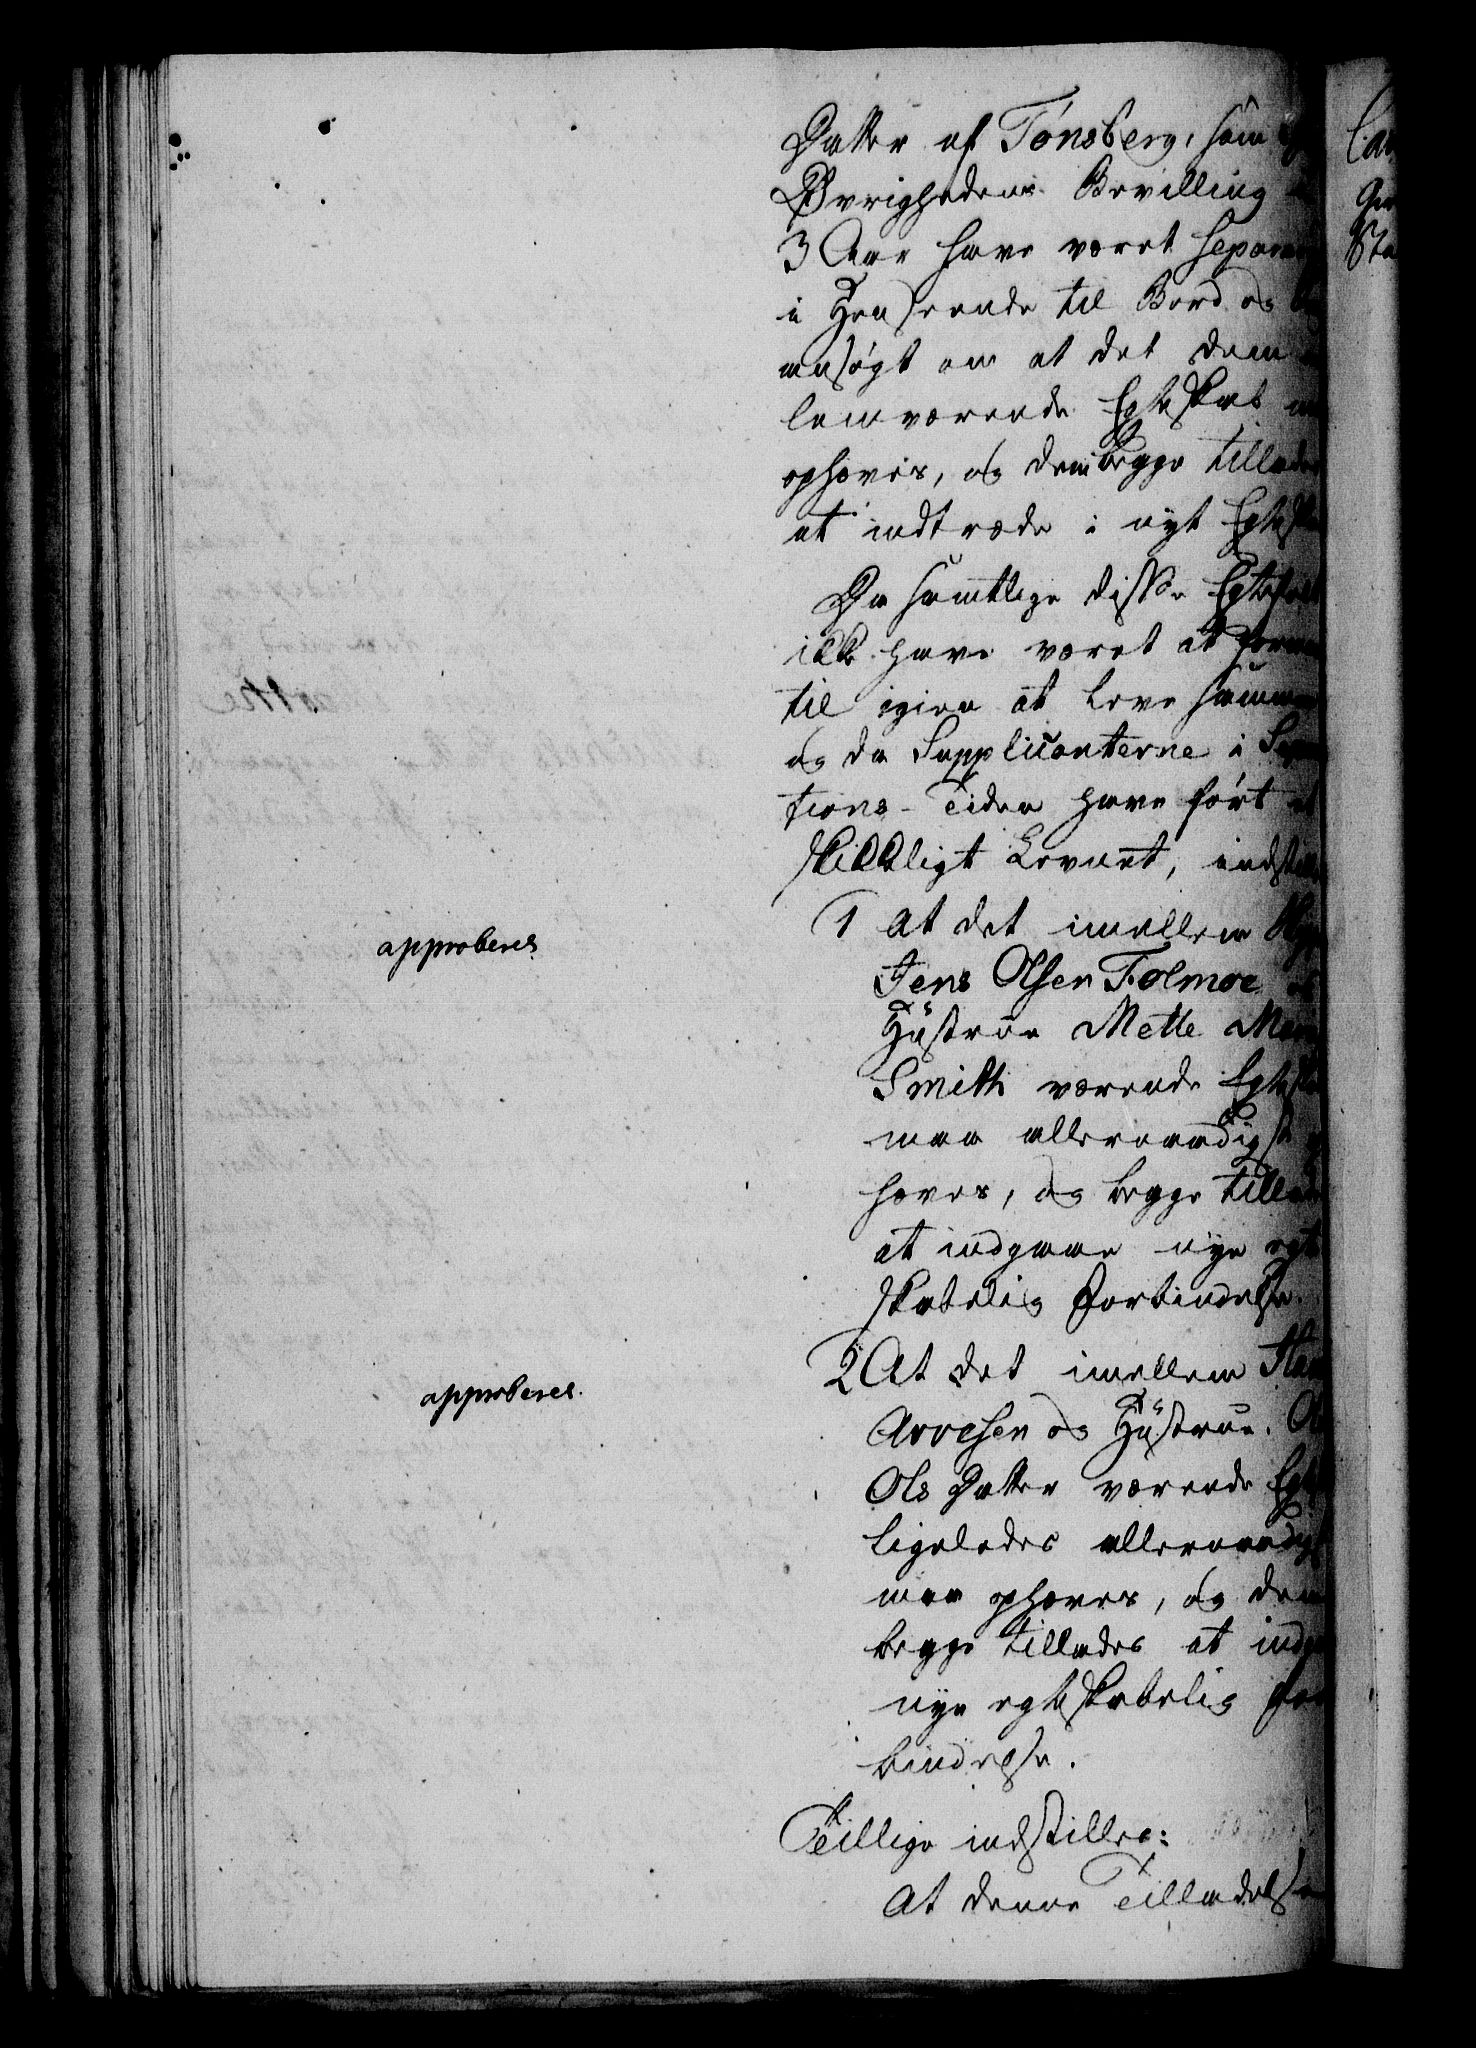 Datter af Tønsberg, som
Øvrighedens Bevilling
3 Aar have været separe
i Henseende til Bord og
ansøgt om at det dem
lem værende Egteskab
ophæves, og dem begge tillades
at indtræde i nyt Egteska
Da samtlige disse Egtefolk
ikke have været at formaa
til igien at leve sammen
og da Supplicanterne i Sepa
tions-Tiden have ført et
skikkeligt Levnet, indstilles
1 At det imellem
approberes
Jens Olsen Folmoe og
Hustrue Mette Mar
Smith værende Egteska
maa allernaadigst
hæves, og begge tillades
at indgaae nye egte
skabelig Forbindelse.
2 At det imellem
approberes.
Arvesen og Hustrue
Ols Datter værende Egte
ligeledes allernaadigst
maa ophæves, og dem
begge tillades at indga
nye egteskabelig For
bindelse.
Tillige indstilles:
At denne Tilladelse